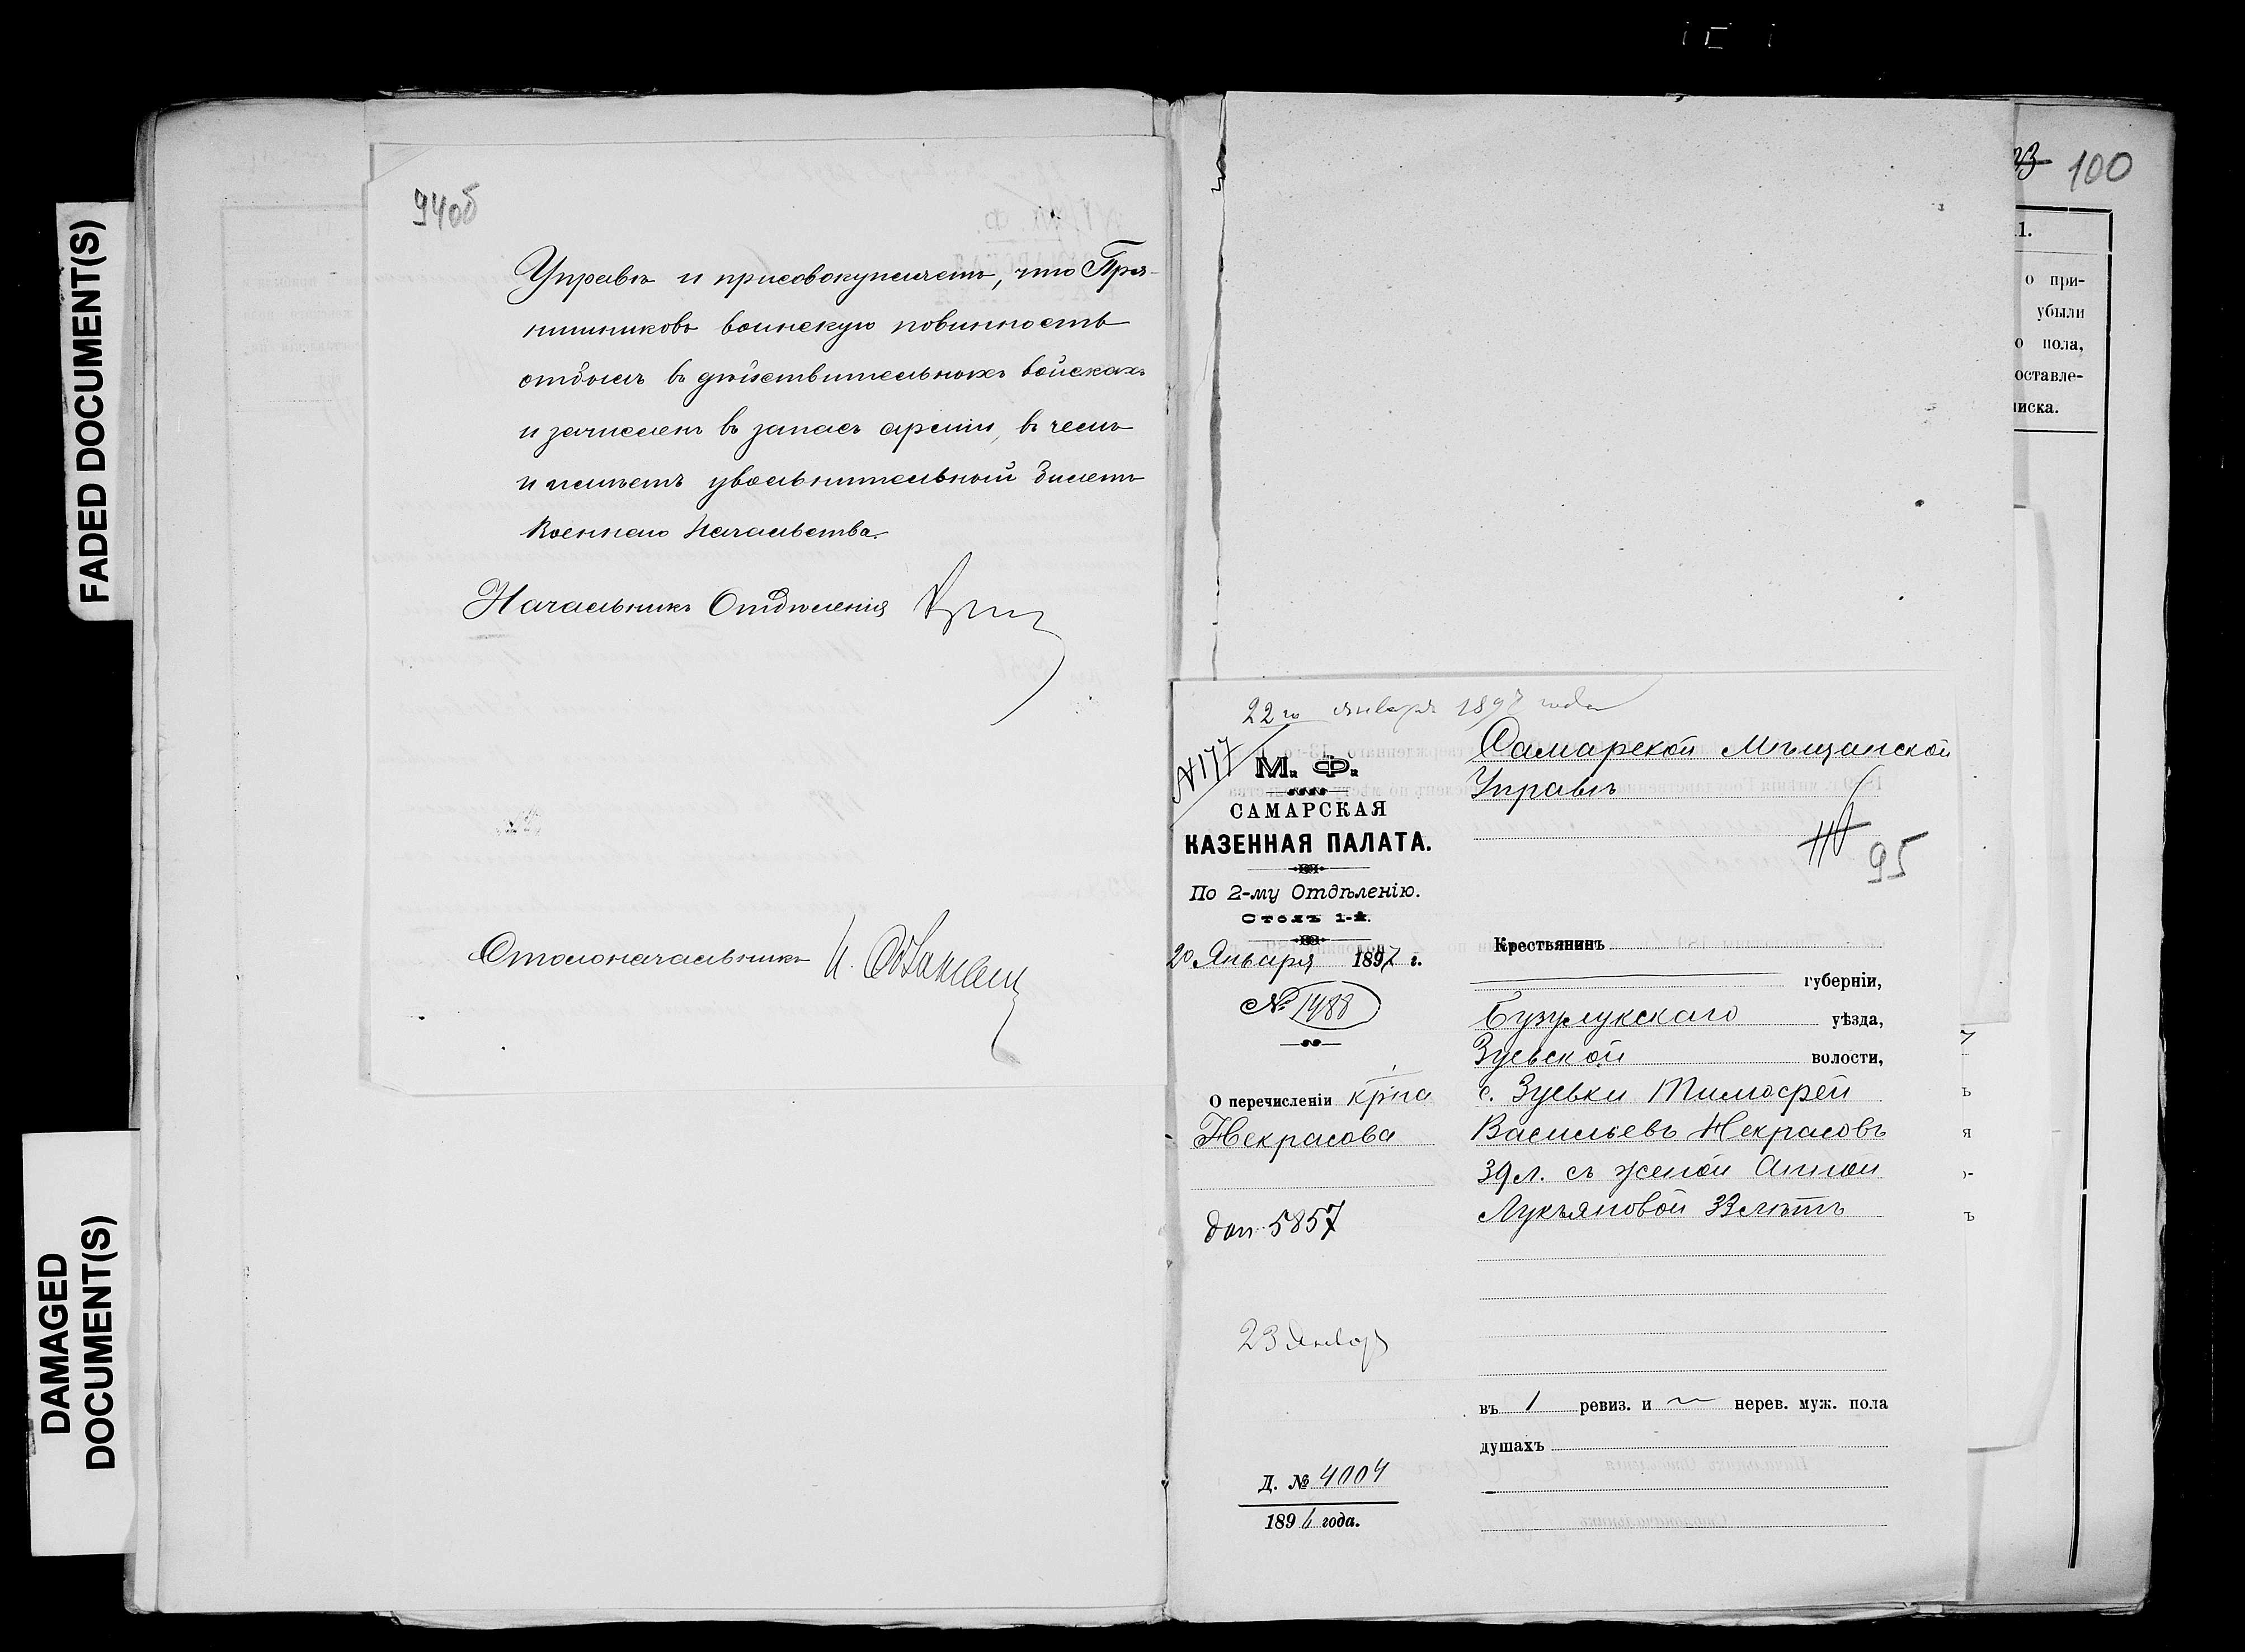 FADED DOCUMENT(S)
DAMAGED
DOCUMENT(S)
94об
Управѣ и присовокупляетъ, что Пря-
нишниковъ воинскую повинность
отбылъ въ дѣйствительныхъ войскахъ
и зачисленъ въ запасъ арміи, въ чемъ
и имѣетъ увольнительный билетъ
Военнаго Начальства.
Начальникъ Отдѣленія
Столоначальникъ
100
1.
о при-
убыли
о пола,
оставле-
иска.
22го января 1897 года
№177
М. Ф.
САМАРСКАЯ
КАЗЕННАЯ ПАЛАТА.
По 2-му Отдѣленію.
Столъ 1-й.
20 Января 1897 г.
№ 1488
О перечисленіи крна
Некрасова
доп. 5857
23 Январ
Д. № 4004
1896 года.
Самарской Мѣщанской
Управѣ
95
Крестьянинъ
губерніи,
Бузулукскаго уѣзда,
Зуевской волости,
с. Зуевки Тимофей
Васильевъ Некрасовъ
39 л. съ женой Анной
Лукьяновой 33 лѣтъ
въ 1 ревиз. и нерев. муж. пола
душахъ